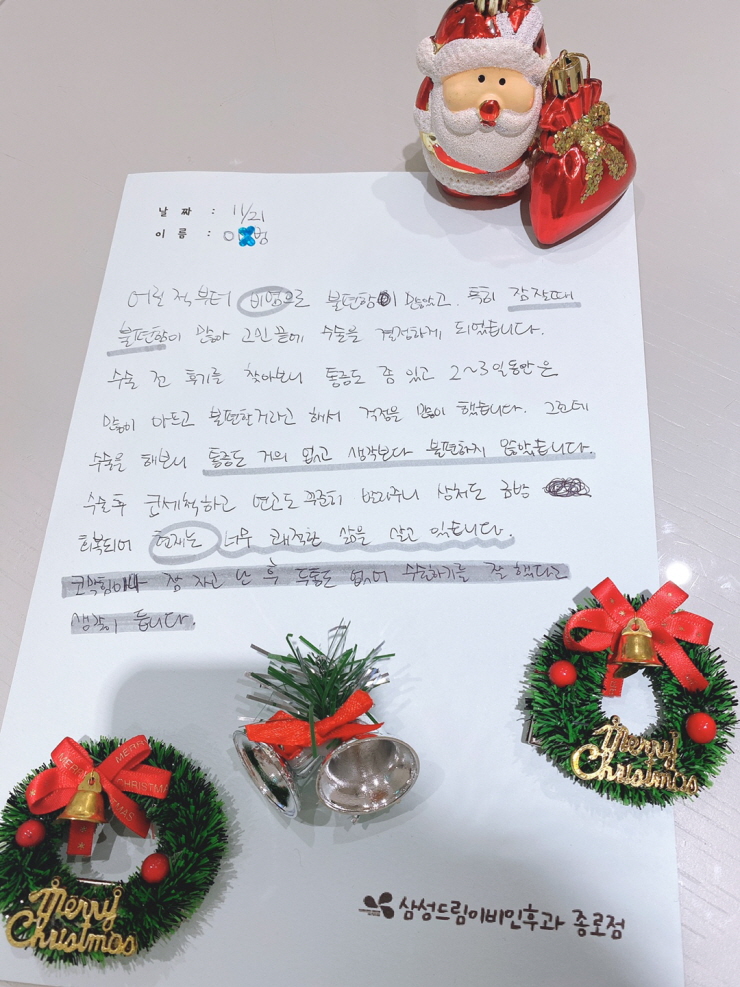 날 짜 : 11/21
이 름 : 이 범
어릴 적부터 비염으로 불편함이 많았고, 특히 잠잘때
불편함이 많아 고민 끝에 수술을 결정하게 되었습니다.
수술 전 후기를 찾아보니 통증도 좀 있고 2~3일동안은
많이 아프고 불편한거라고 해서 걱정을 많이 했습니다. 그런데
수술을 해보니 통증도 거의 없고 생각보다 불편하지 않았습니다.
수술후 코세척하고 연고도 꾸준히 발라주니 상처도 금방
회복되어 현재는 너무 쾌적한 삶을 살고 있습니다.
코막힘이나 잠 자고 난 후 두통도 없어 수술하기를 잘 했다고
생각이 듭니다.
MERRY CHRISTMAS
Merry Christmas
Merry Christmas
삼성드림이비인후과 종로점